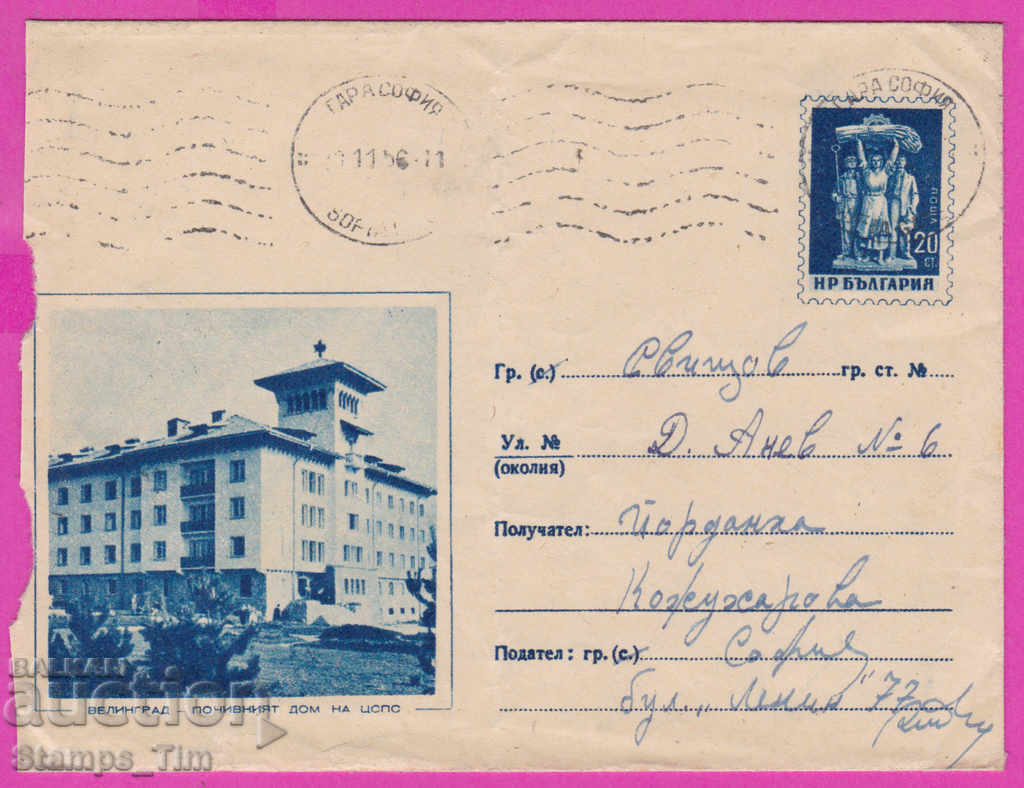 ГАРА СОФИЯ
11 56-11
ГАРА СОФИЯ
ПОЩА
20
СТ.
НР БЪЛГАРИЯ
Гр. (с.) Свищов гр. ст. №
Ул. № Д. Анев № 6
(околия)
Получател: Йорданка
Кожухарова
Подател: гр. (с.) София
бул. „Ленин" 77
ВЕЛИНГРАД ПОЧИВНИЯТ ДОМ НА ЦСПС
BALKAN
auction
Stamps_Tim